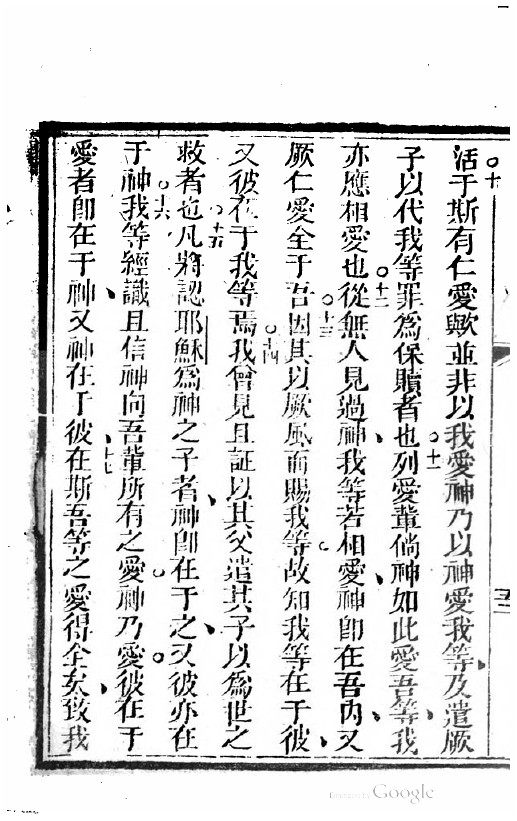 活于斯有仁愛歟並非以我愛神乃以神愛我等及遣厥
子以代我等罪為保贖者也列愛輩倘神如此愛吾等我
亦應相愛也從無人見過神我等若相愛神即在吾內又
厥仁愛全于吾因其以厥風而賜我等故知我等在于彼
又彼在于我等焉我曾見且証以其父遣其子以為世之
救者也凡將認耶穌為神之子者神即在于之又彼亦在
于神我等經識且信神向吾輩所有之愛神乃愛彼在于
愛者即在于神又神在于彼在斯吾等之愛得全矣致我
十
十一
十二
十三
十四
十五
十六
十七
Digitized by Google